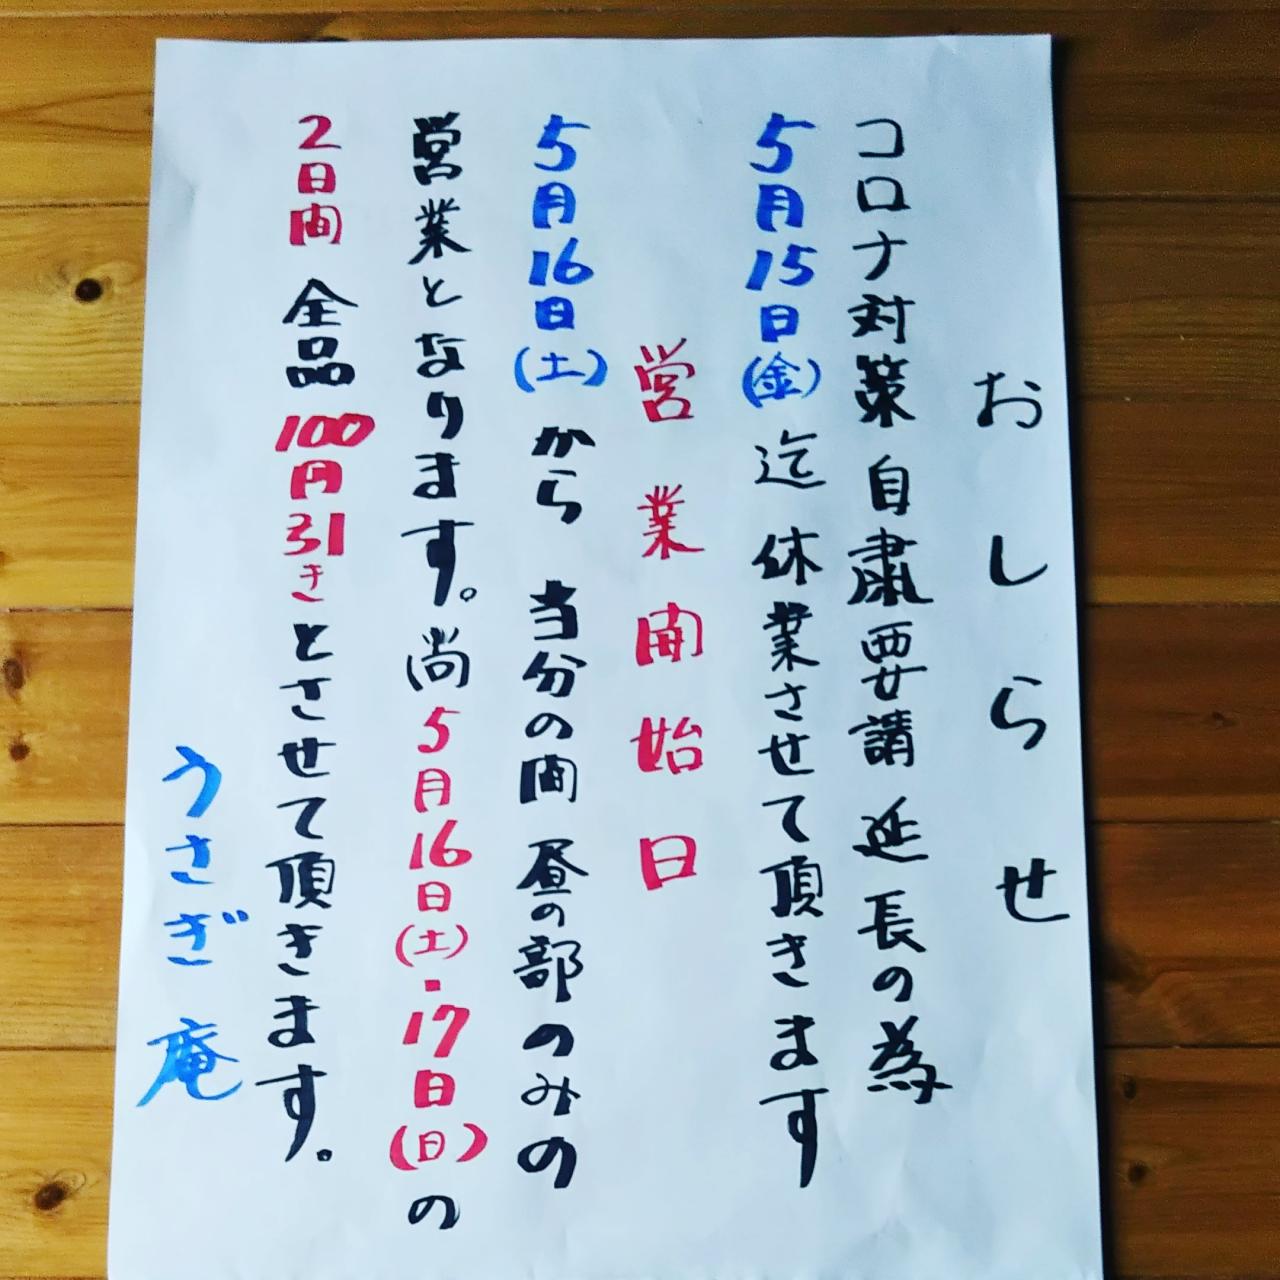 おしらせ
コロナ対策 自粛要請 延長の為
5月15日(金) 迄 休業させて頂きます
営業開始日
5月16日(土)から 当分の間 昼の部のみの
営業となります。尚5月16日(土)・17日(日)の
2日間 全品100円引きとさせて頂きます。
うさぎ庵